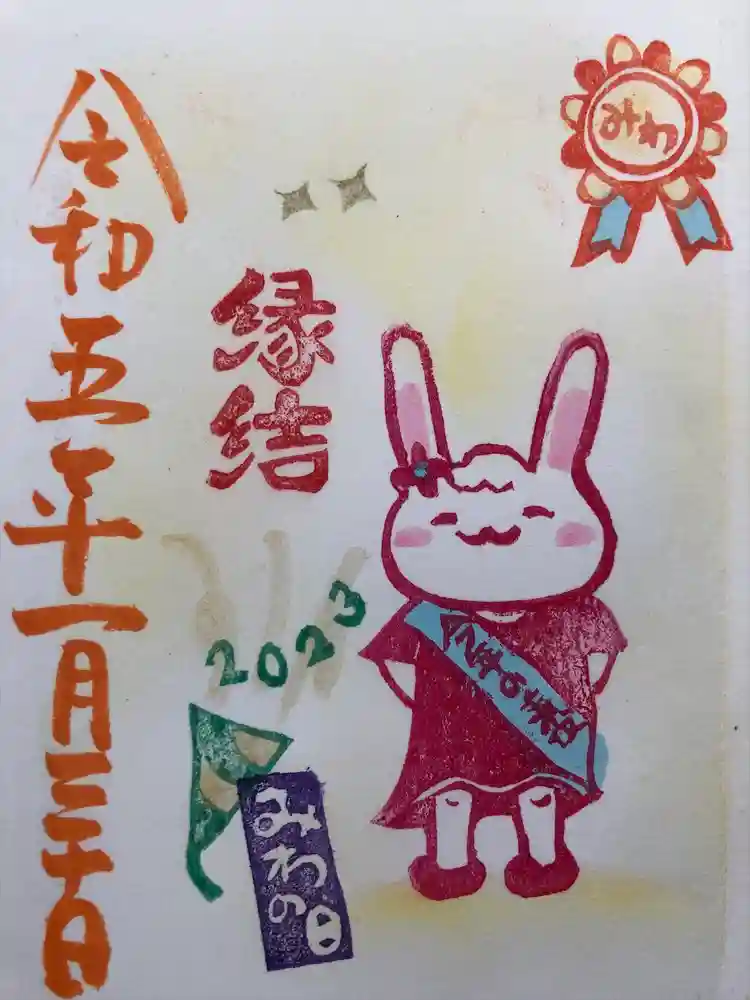 みわ
縁結
2023
今年の
みわの日
令和五年一月三十日